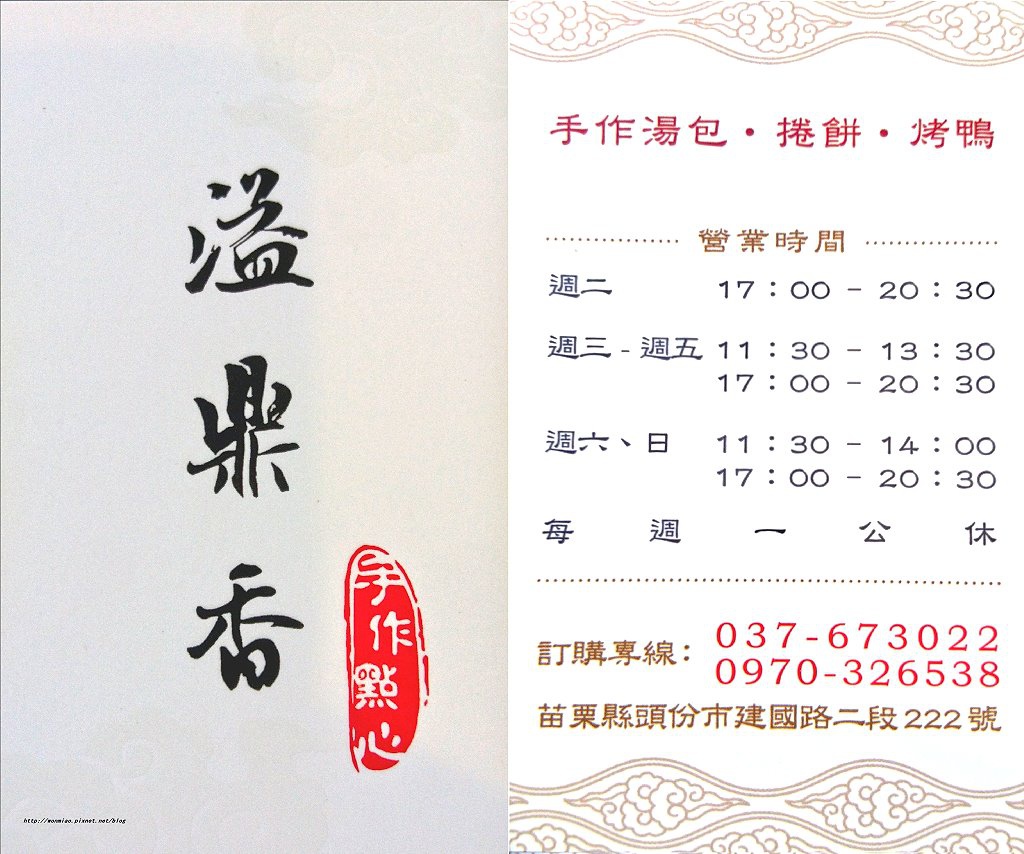 溢鼎香
手作點心
http://wonmiao.pixnet.net/blog
手作湯包・捲餅・烤鴨
營業時間
週二 17：00 - 20：30
週三 - 週五 11：30 - 13：30
17：00 - 20：30
週六、日 11：30 - 14：00
17：00 - 20：30
每週一公休
訂購專線： 037-673022
0970-326538
苗栗縣頭份市建國路二段222號